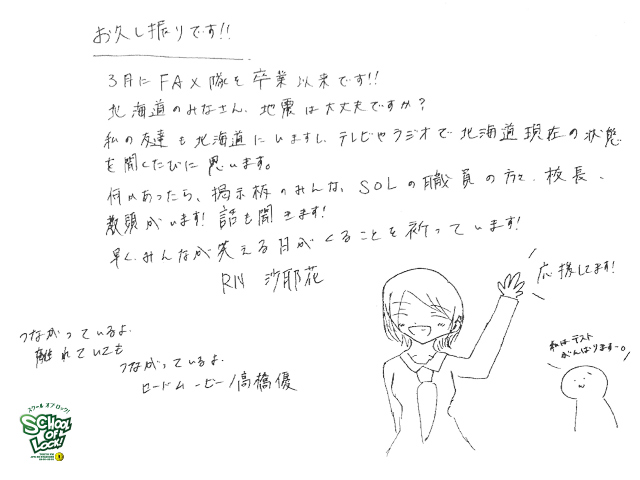 お久し振りです!!
3月にFAX隊を卒業以来です!!
北海道のみなさん、地震は大丈夫ですか?
私の友達も北海道にいますし、テレビやラジオで北海道現在の状態
を聞くたびに思います。
何かあったら、掲示板のみんな、SOLの職員の方々、校長、
教頭がいます!話も聞きます!
早く、みんなが笑える日がくることを祈っています!
RN 沙耶花
応援してます!
私はテスト
がんばりますー。
つながっているよ、
離れていても
つながっているよ、
ロードムービー/高橋優
スクール オブ ロック!
SCHOOL
OF
LOCK!